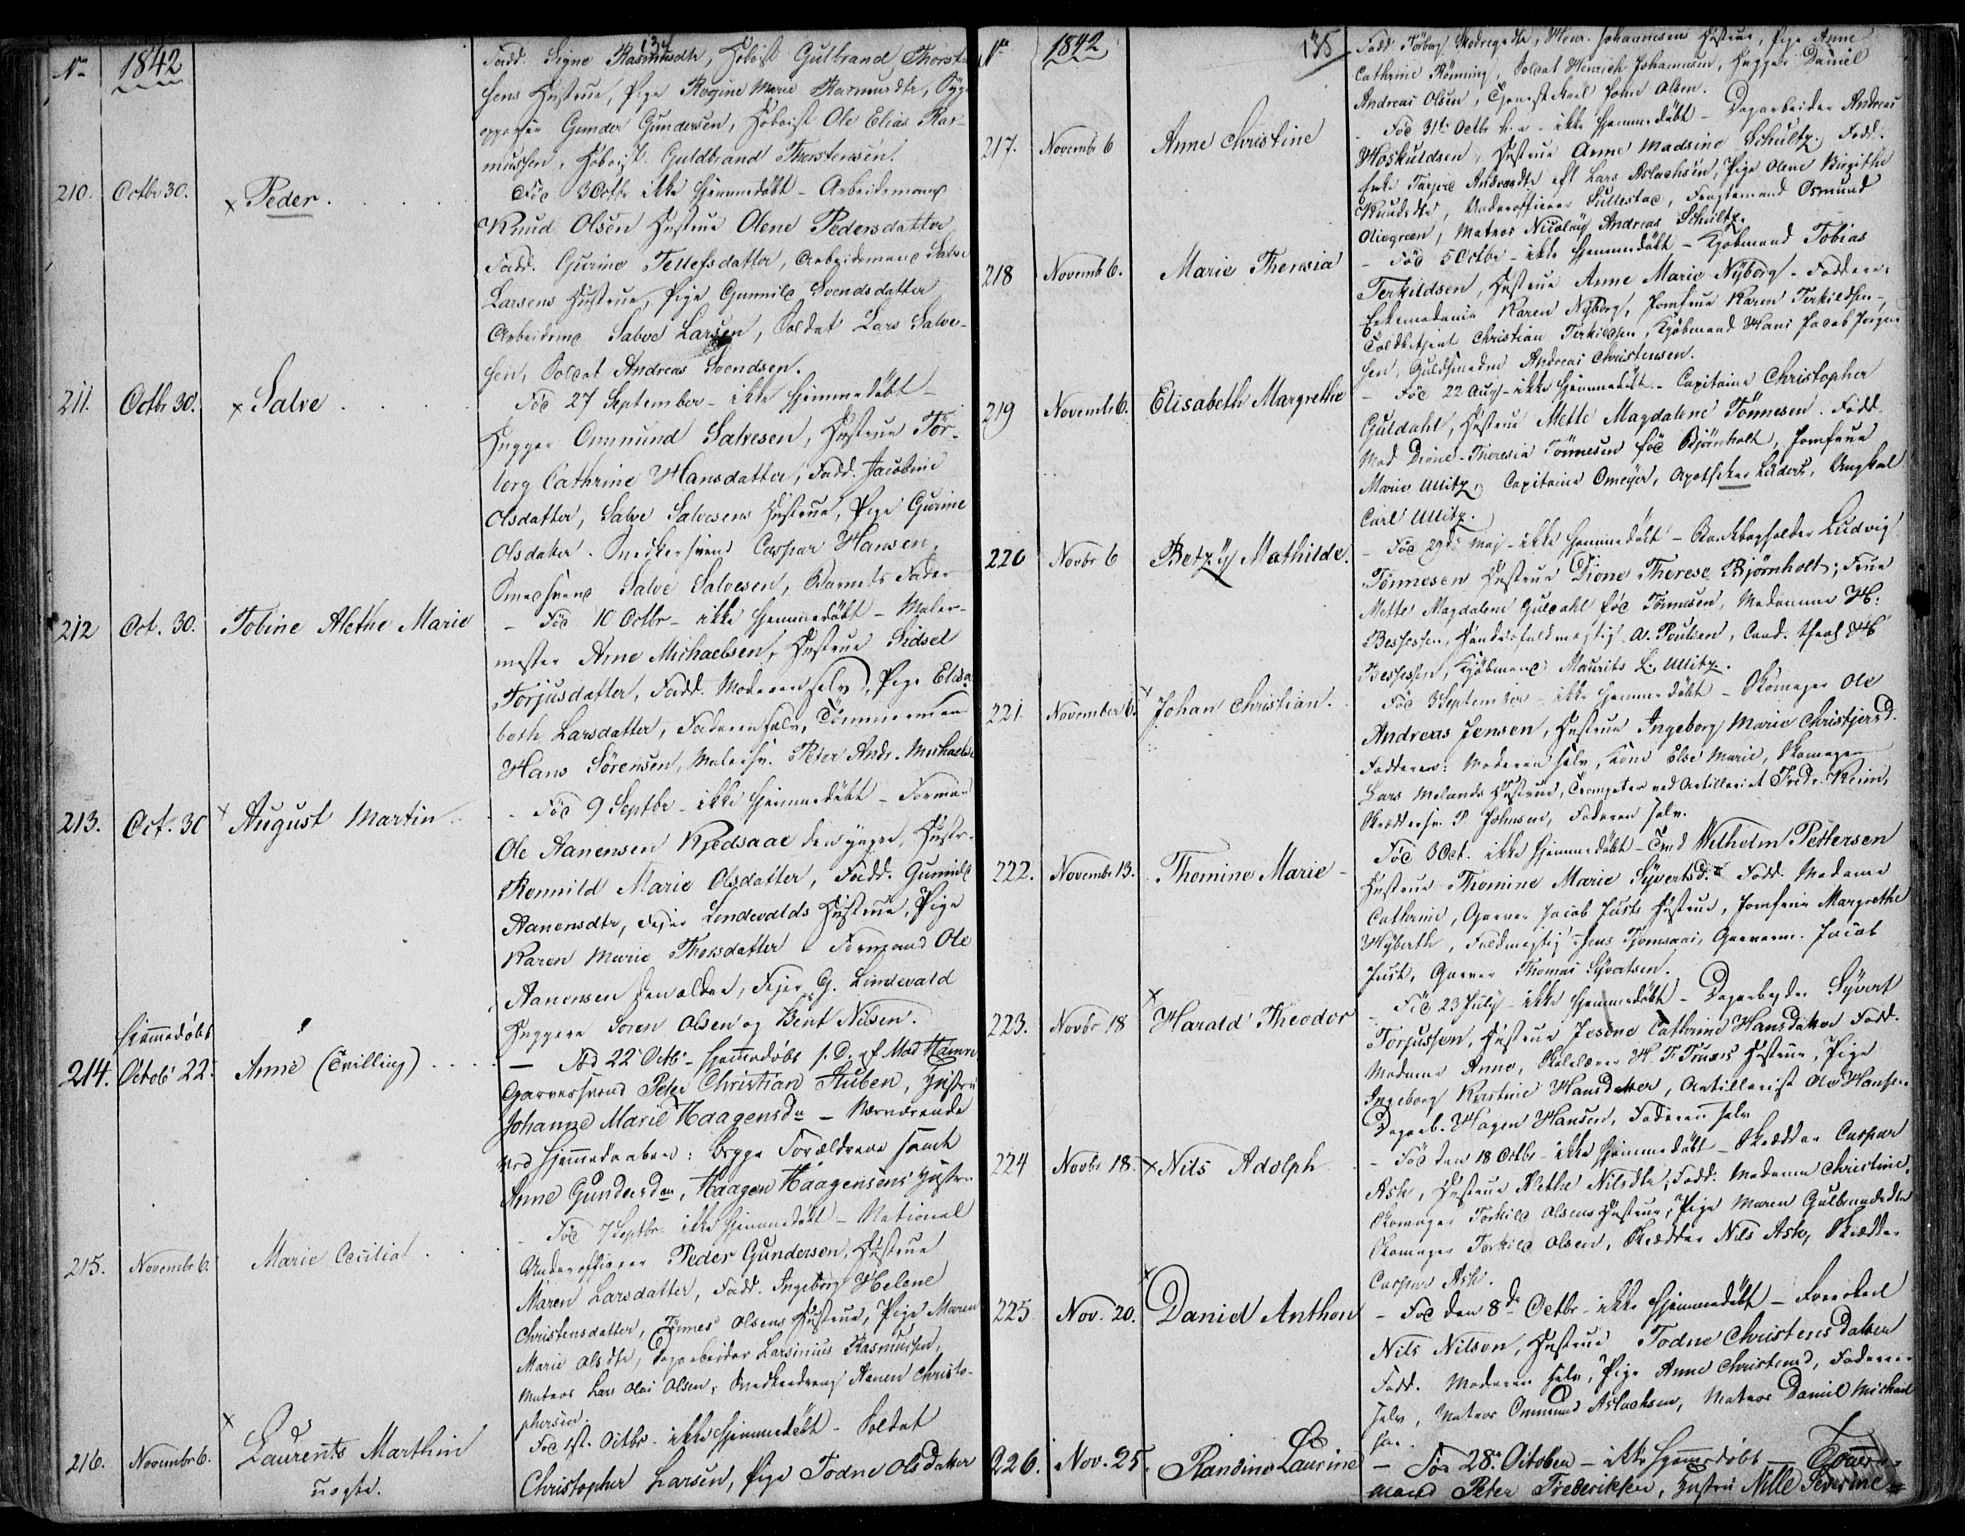 No 1842 134
Fadd. Signe Rasmusdtr, Hoboist Gulbrand Thorste
sens Hustrue, Pige Rogine Marie Rasmusdtr,
Gunder Gundersen, Hoboist Ole Elias Ras-
mussen, Hoboist Guldbrand Thorstensen.
210. Octbr 30. x Peder.
Fød 3 Octbr ikke hjemmedøbt - Arbeidsmand
Knud Olsen Hustrue Olene Pedersdatter
Fadd. Gurine Tellefsdatter, Arbeidsmand Salve
Larsens Hustrue, Pige Gunnild Svendsdatter
Arbeidsmd Salve Larsen, Soldat Lars Salve-
sen, Soldat Andreas Svendsen.
211. Octbr 30. x Salve
Fød 27 September - ikke hjemmedøbt -
Hugger Ommund Salvesen, Hustrue Tor-
berg Cathrine Hansdatter, Fadd. Jacobine
Olsdatter, Salve Salvesens Hustrue, Pige Gurine
Olsdatter. Snedkersvend Caspar Hansen,
Smedsvend Salve Salvesen, Barnets Fader
212 Oct. 30. Tobine Alethe Marie
- Fød 10 Octbr - ikke hjemmedøbt - Maler-
mester Arne Michaelsen, Hustrue Sidsel
Torjusdatter, Fadd. Moderen selv, Pige Elisa
beth Larsdatter, Faderen selv, Tømmermand
Hans Sörensen, Malersv. Peter Andr. Michaelse
213. Oct. 30 x August Martin
- Fød 9 Septbr - ikke hjemmedøbt - Formand
Ole Aanensen Kjedsaae den yngre, Hustr.
Ronnild Marie Olsdatter, Fadd. Gunnild
Aanensdtr, Fejer Lindevalds Hustrue, Pige
Karen Marie Thorsdatter - Formand Ole
Aanensen den ældre, Fejer G. Lindevald
Huggere Soren Olsen og Bent Nilsen.
214. Hjemmedøbt Octob 22. Anne (Tvilling)
- Fød 22 Octb - hjemmedøbt s. D. af Mad Hamre
Garversvend Peter Christian Stuben, Hustru
Johanne Marie Haagensdr - Nærværende
ved hjemmedaaben: begge Forældrene samt
Anne Gundersdr, Haagen Haagensens Hustru
215. Novembr 6. Marie Cecilia
- Fød 7 Septbr ikke hjemmedøbt - National
Underofficeer Peder Gundersen, Hustrue
Maren Larsdatter, Fadd. Ingeborg Helene
Christensdatter, Tönnes Olsens Hustrue, Pige Maren
Marie Olsdtr, Dagarbeider Larsinius Rasmussen,
Matros Lars Olai Olsen, Snedkerdreng Aanen Christo-
phersen.
216. Novembr 6. x Laurents Marthin
uægte.
Fød 1st. Octbr - ikke hjemmedøbt - Soldat
Christopher Larsen, Pige Todne Olsdatter
No 1842 135
Cathrine Rönning, Soldat Henrich Johannesen, Hugger Daniel
Andreas Olsen, Tjenestekarl John Olsen.
217. Novembr 6 Anne Christine
- Fød 31te Octbr - ikke hjemmedøbt - Dagarbeider Andreas
Hoskuldsen, Hustrue Anne Madsine Schultz. Fadd.
Enke Andreasdtr eft Lars Aslachsen, Pige Olene Birgithe
Knudsdtr, Underofficeer Sullestad, Osmund
Oliegreen, Matros Nicolay Andreas Schultz.
218 Novemb 6. Marie Theresia
- Fød 5 Octbr - ikke hjemmedøbt - Kjøbmand Tobias
Terkildsen, Hustrue Anne Marie Nÿborg - Faddere:
Enkemadame Karen Nÿborg, Jomfrue Karen Terkildsen -
Toldbetjent Christian Terkildsen, Kjøbmand Hans Jacob Jörgen
sen, Guldsmed Andreas Christensen.
219 Novembr 6. Elisabeth Margrethe
- Fød 22 Aug - ikke hjemmedøbt - Capitaine Christopher
Guldahl, Hustrue Mette Magdalene Tönnesen. Fadd.
Mad Dione Theresia Tönnesen fød Björnholt, Jomfrue
Marie Ullitz, Capitaine Omeÿer, Apotheker Lüders, Ungkarl
Carl Ullitz.
220 Novbr 6 Betzÿ Mathilde.
- Fød 29de Maj - ikke hjemmedøbt - Bankbogholder Ludvig
Tönnesen Hustrue Dione Therese Björnholt; Frue
Mette Magdalene Guldahl fød Tönnesen, Madamme H.
Bessesen, Handelsfuldmegtig A. Poulsen, Cand. theol H
Bessesen, Kjøbmand Maurits L. Ullitz.
221. November 6. x Johan Christian.
Fød 3 September - ikke hjemmedøbt - Skomager Ole
Andreas Jensen, Hustrue Ingeborg Marie Christjersd.
Faddere: Moderen selv, Kone Else Marie, Skomager
Lars Melands Hustrue, Trompeter ved Artilleriet Fredr. Keim,
Skræddersv. P Johnsen, Faderen selv.
222. Novembr 13. Thomine Marie -
Fød 3 Oct. ikke hjemmedøbt - Tmd Wilhelm Pettersen
Hustrue Thomine Marie Sÿvertsd. Fadd. Madame
Cathrine, Garver Jacob Justs Hustrue, Jomfrue Margrethe
Wÿberth, Fuldmegtig Jens Tjomsaas, Garverm. Jacob
Just, Garver Thomas Sÿvertsen.
223. Novbr 18 x Harald Theodor
- Fød 23 July - ikke hjemmedøbt - Dagarbeyder Sÿvert
Torjussen, Hustrue Jesine Cathrine Hansdatter Fadd.
Madame Anne, Skolelærer H. F. Hustrue, Pige
Ingeborg Kirstine Hansdatter, Artillerist Ole Hansen
Dagarb. Hagen Hansen, Faderen selv
224 Novbr 18. x Nils Adolph
- Fød den 18 Octbr - ikke hjemmedøbt - Skrædder Caspar
Ask, Hustrue Nilsdtr, Fadd. Madame Christine,
Skomager Torkild Olsens Hustrue, Pige Maren Gulbrandsdtr
Skomager Torkild Olsen, Skrædder Nils Ask, Skrædder
Caspar Ask.
225 Nov. 20. x Daniel Anthon
- Fød den 8de Octbr - ikke hjemmedøbt -
Nils Nilsen, Hustrue Todne Christensdatter
Fadd. Moderen selv, Pige Anne Christensd, Faderen
selv, Matros Ommund Aslachsen, Matros Daniel Michael
sen.
226. Nov. 25. Randine Laurine
- Fød 28 October - ikke hjemmedøbt - Tømmer-
mand Peter Frederiksen, Hustru Nille Severine